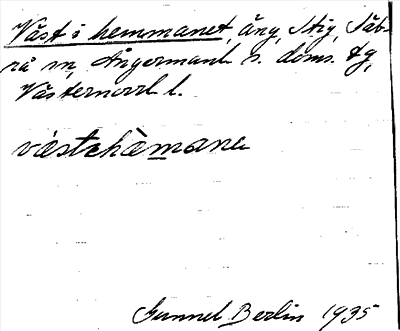 Väst i hemmanet, äng, Stig, Säb-
rå sn, Ångermanl. s. doms. tg,
Västernorrl l.
västehàmana
Gunnel Berlin 1935